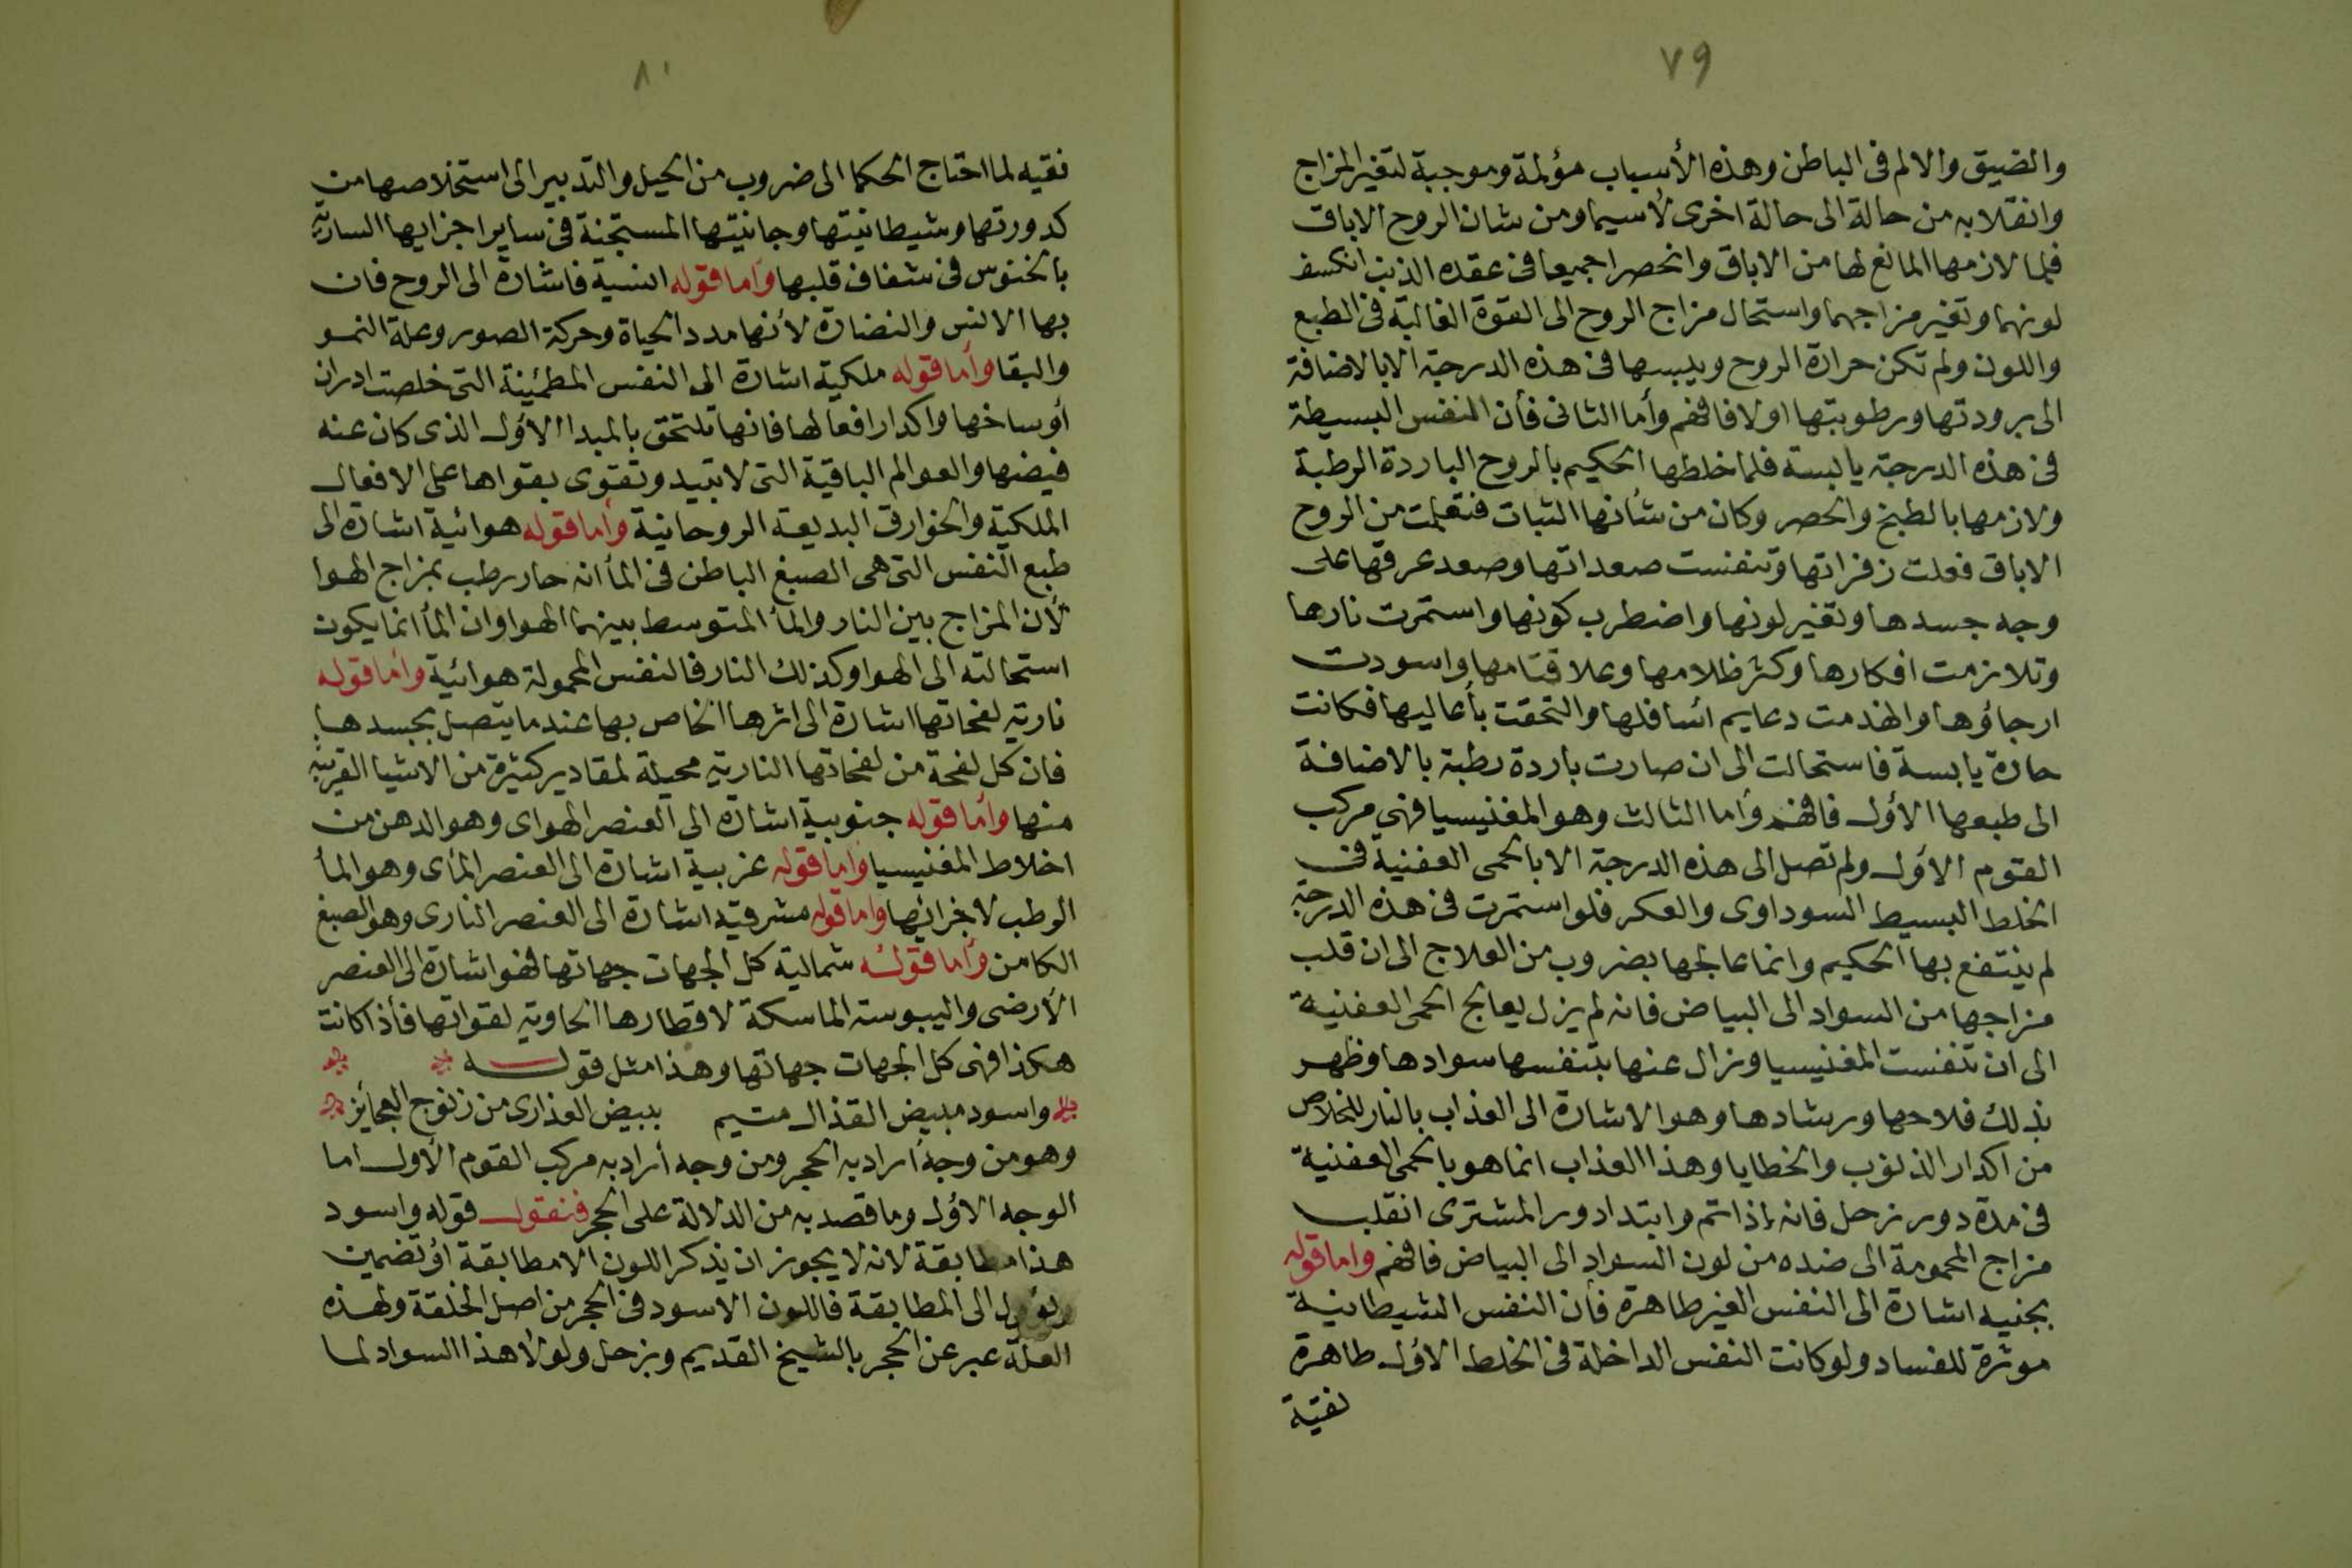 ٧٩
والضيق والالم فى الباطن وهذه الأسباب مؤلمة وموجبة لتغير المزاج
وانقلابه من حالة الى حالة اخرى لاسيما ومن شان الروح الاباق
فلما لازمها المانع لها من الاباق وانحصرا جميعا فى عقده الذنب انكسف
لونهما وتغير مزاجهما واستحال مزاج الروح الى القوة الغالبة فى الطبع
واللون ولم تكن حرارة الروح ويبسها فى هذه الدرجة الا بالاضافة
الى برودتها ورطوبتها اولا فافهم وأما الثانى فأن النفس البسيطة
فى هذه الدرجة يابسة فلما خلطها الحكيم بالروح الباردة الرطبة
ولازمها بالطبخ والحصر وكان من شأنها الثبات فتعلمت من الروح
الاباق فعلت زفراتها وتنفست صعداتها وصعد عرقها على
وجه جسدها وتغير لونها واضطرب كونها واستمرت نارها
وتلازمت افكارها وكثر ظلامها وعلا قتامها واسودت
ارجاؤها وانهدمت دعايم اسافلها والتحقت بأعاليها فكانت
حارة يابسة فاستحالت الى ان صارت باردة رطبة بالاضافة
الى طبعها الأول فافهم وأما الثالث وهو المغنيسيا فهى مركب
القوم الأول ولم تصل الى هذه الدرجة الا بالحمى العفنية فى
الخلط البسيط السوداوى والعكر فلو استمرت فى هذه الدرجة
لم ينتفع بها الحكيم وانما عالجها بضروب من العلاج الى ان قلب
مزاجها من السواد الى البياض فانه لم يزل يعالج الحمى العفنية
الى ان تنفست المغنيسيا وزال عنها بتنفسها سوادها وظهر
بذلك فلاحها ورشادها وهو الاشارة الى العذاب بالنار للخلاص
من اكدار الذنوب والخطايا وهذا العذاب انما هو بالحمى العفنية
فى مدة دور زحل فانه إذا تم وابتدا دور المشترى انقلب
مزاج المحمومة الى ضده من لون السواد الى البياض فافهم واما قوله
بجنيه اشارة الى النفس الغير طاهرة فأن النفس الشيطانية
موثرة للفساد ولو كانت النفس الداخلة فى الخلط الاول طاهرة
نقية
٨٠
نقيه لما احتاج الحكما الى ضروب من الحيل والتدبير الى استخلاصها من
كدورتها وشيطانيتها وجانيتها المستجنة فى ساير اجزايها السارية
بالخنوس فى شغاف قلبها وأما قوله انسية فاشارة الى الروح فان
بها الانس والنضارة لأنها مدد الحياة وحركة الصور وعلة النمو
والبقا وأما قوله ملكية اشارة الى النفس المطمئينة التى خلصت ادران
أوساخها واكدار افعالها فانها تلتحق بالمبدا الأول الذى كان عنه
فيضها والعوالم الباقية التى لا تبيد وتقوى بقواها على الافعال
الملكية والخوارق البديعة الروحانية وأما قوله هوائية اشارة الى
طبع النفس التى هى الصبغ الباطن فى المأ انه حار رطب بمزاج الهوا
لأن المزاج بين النار والمأ المتوسط بينهما الهوا وان المأ انما يكون
استحالته الى الهوا وكذلك النار فالنفس المحمولة هوائية وأما قوله
نارية لفحاتها اشارة الى اثرها الخاص بها عندما يتصل بجسدها
فان كل لفحة من لفحاتها النارية محيلة لمقادير كثيرة من الاشيا القريبة
منها وأما قوله جنوبية اشارة الى العنصر الهواى وهو الدهن من
اخلاط المغنيسيا وأما قوله غربية اشارة الى العنصر المأى وهو المأ
الوطب لاجزائها واما قوله مشرقية اشارة الى العنصر النارى وهو الصبغ
الكامن وأما قوله شمالية كل الجهات جهاتها فهو اشارة الى العنصر
الأرضى واليبوسة الماسكة لاقطارها الحاوية لقواتها فأذا كانت
هكذا فهى كل الجهات جهاتها وهذا مثل قوله
واسود مبيض القذال متيم ببيض العذارى من زنوج العجايز
وهو من وجه أراد به الحجر ومن وجه أراد به مركب القوم الأول اما
الوجه الاول وما قصد به من الدلالة على الحجر فنقول قوله واسود
هذا مطابقة لانه لا يجوز ان يذكر اللون الا مطابقة أو تضمين
ويؤول الى المطابقة فاللون الاسود فى الحجر من اصل الخلقة ولهذه
العلة عبر عن الحجر بالشيخ القديم وبزحل ولولا هذا السواد لما